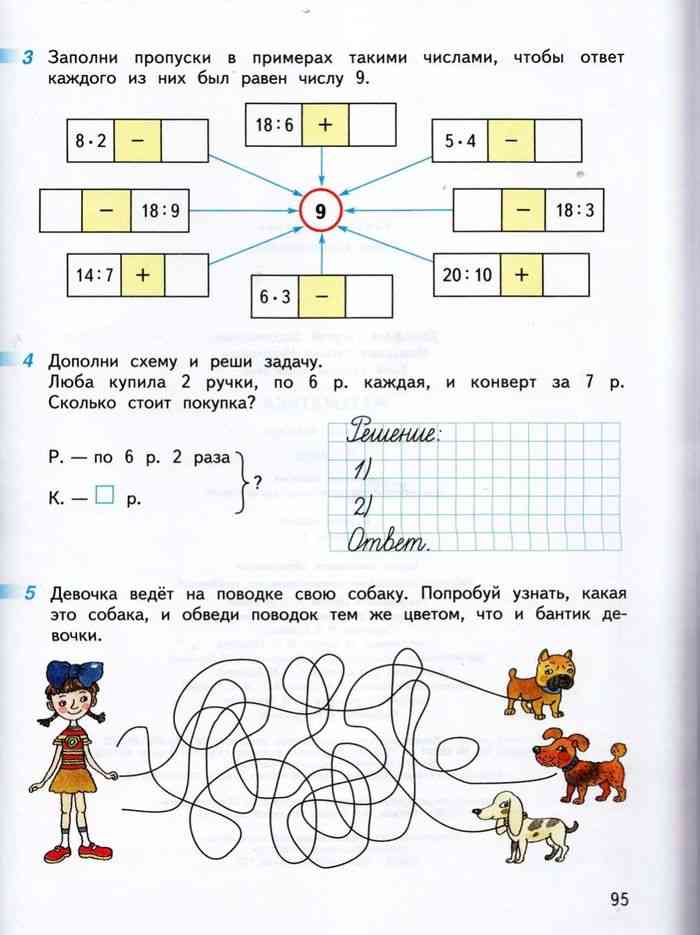 3 Заполни пропуски в примерах такими числами, чтобы ответ
каждого из них был равен числу 9.
8·2 −
18:6 +
5·4 −
− 18:9
9
− 18:3
14:7 +
6·3 −
20:10 +
4 Дополни схему и реши задачу.
Люба купила 2 ручки, по 6 р. каждая, и конверт за 7 р.
Сколько стоит покупка?
Р. — по 6 р. 2 раза
К. — р.
?
Решение:
1)
2)
Ответ.
5 Девочка ведёт на поводке свою собаку. Попробуй узнать, какая
это собака, и обведи поводок тем же цветом, что и бантик де-
вочки.
95